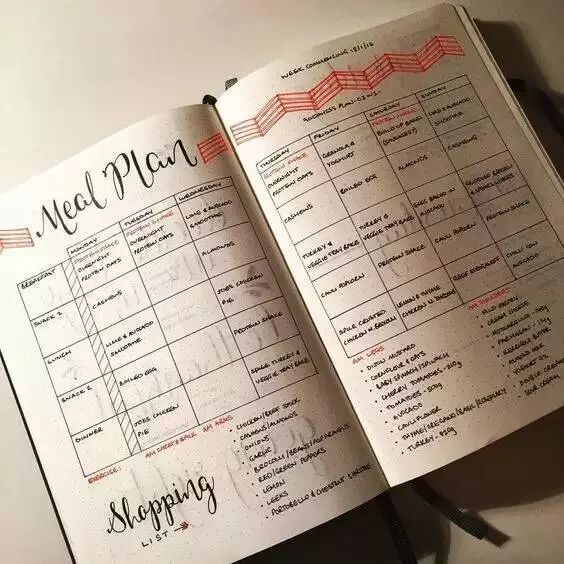 Meal Plan
MONDAY TUESDAY WEDNESDAY
BREAKFAST
PROTEIN SHAKE
OVERNIGHT
PROTEIN OATS
PROTEIN SHAKE
OVERNIGHT
PROTEIN OATS
LIME & AVOCADO
SMOOTHIE
SNACK 1
CASHEWS
ALMONDS
LUNCH
LIME & AVOCADO
SMOOTHIE
JOE'S CHICKEN
PIE
SNACK 2
BOILED EGG
PROTEIN SHAKE
DINNER
JOE'S CHICKEN
PIE
SPICE TURKEY &
VEGGIE TRAY BAKE
EXERCISE: AM CHEST & BACK AM ARMS
Shopping
LIST
• CHICKEN/BEEF STOCK
• CASHEWS/ALMONDS
• ONIONS
• GARLIC
• BROCOLLI/BEANS/ASPARAGUS
• RED/GREEN PEPPERS
• LEMON
• LEEKS
• PORTOBELLO & CHESTNUT
WEEK COMMENCING 18/1/16
THURSDAY FRIDAY SATURDAY SUNDAY
PROTEIN SHAKE
OVERNIGHT
PROTEIN OATS
GRANOLA &
YOGHURT
PROTEIN SHAKE
BUILD UP BAGEL
LIME & AVOCADO
SMOOTHIE
CASHEWS
BOILED EGG
ALMONDS
CASHEWS
TURKEY &
VEGGIE TRAY BAKE
TURKEY &
VEGGIE TRAY BAKE
EGG BAKED IN
AVOCADO
CAULI POPCORN
PROTEIN SHAKE
CAULI POPCORN
PROTEIN SHAKE
SPICE CRUSTED
CHICKEN N BROCOLLI
LEMON & THYME
CHICKEN
BEEF STROGANOFF
CHILLI
AVOCADO
AM LEGS
• DIJON MUSTARD
• CORNFLOUR & OATS
• BABY SPINACH/SPINACH
• CHERRY TOMATOES
• TOMATOES
• AVOCADO
• CAULIFLOWER
• THYME/OREGANO/BASIL/ROSEMARY
• TURKEY
AM SHOULDERS
• FILO PASTRY
• CREAM CHEESE
• MOZZARELLA
• PARMESAN
• DOUBLE CREAM
• SOUR CREAM